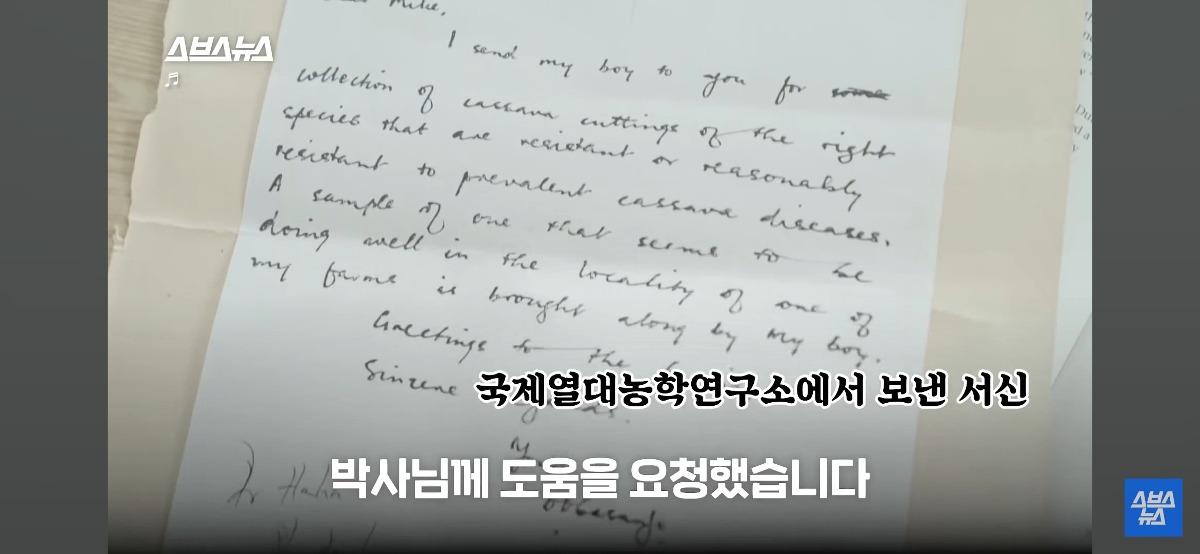 스브스뉴스
Mike,
I send my boy to you for some
collection of cassava cuttings of the right
species that are resistant or reasonably
resistant to prevalent cassava diseases.
A sample of one that seems to be
doing well in the locality of one of
my farms is brought along by my boy.
Greetings to the
Sincere
국제열대농학연구소에서 보낸 서신
박사님께 도움을 요청했습니다
Dr Hahn
스브스
뉴스